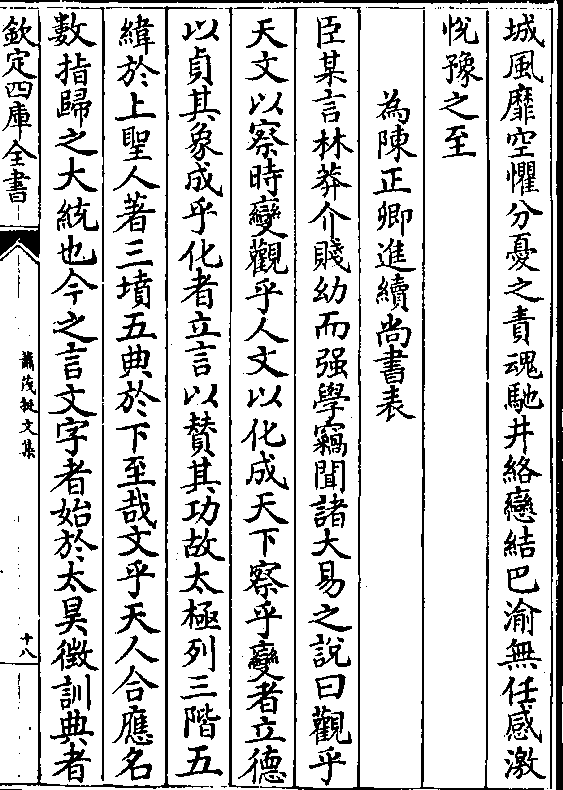 城風靡空懼分憂之責魂馳井絡戀結巴渝無任感激
悅豫之至
為陳正卿進續尚書表
臣某言林莽介賤幼而强學竊聞諸大易之說曰觀乎
天文以察時變觀乎人文以化成天下察乎變者立德
以貞其象成乎化者立言以賛其功故太極列三階五
緯於上聖人著三墳五典於下至哉文乎天人合應名
數指歸之大統也今之言文字者始於太昊徵訓典者
欽定四庫全書
蕭茂挺文集
十八